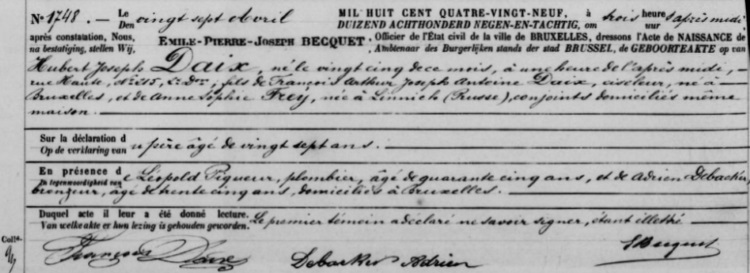 No 1748. — Le vingt sept Avril MIL HUIT CENT QUATRE-VINGT-NEUF, à trois heures après midi
Den DUIZEND ACHTHONDERD NEGEN-EN-TACHTIG, om
après constatation, Nous, EMILE-PIERRE-JOSEPH BECQUET, Officier de l'État civil de la ville de BRUXELLES, dressons l'Acte de NAISSANCE de
na bestatiging, stellen Wij, Ambtenaar des Burgerlijken stands der stad BRUSSEL, de GEBOORTEAKTE op van
Hubert Joseph Daix, né le vingt cinq de ce mois, à une heure de l'après midi,
rue Haute, No 215, fils de François Arthur Joseph Antoine Daix, ciseleur, né à
Bruxelles, et de Anne Sophie Frey, née à Linnich (Prusse), conjoints domiciliés même
maison.
Sur la déclaration du père âgé de vingt sept ans.
Op de verklaring van
En présence de Léopold Piqueur, plombier, âgé de quarante cinq ans, et de Adrien Debacker,
In tegenwoordigheid van
bronzeur, âgé de trente cinq ans, domiciliés à Bruxelles.
Duquel acte il leur a été donné lecture. Le premier témoin a déclaré ne savoir signer, étant illettré
Van welke akte er hun lezing is gehouden geworden.
Colle.
François Daix Debacker Adrien EBecquet